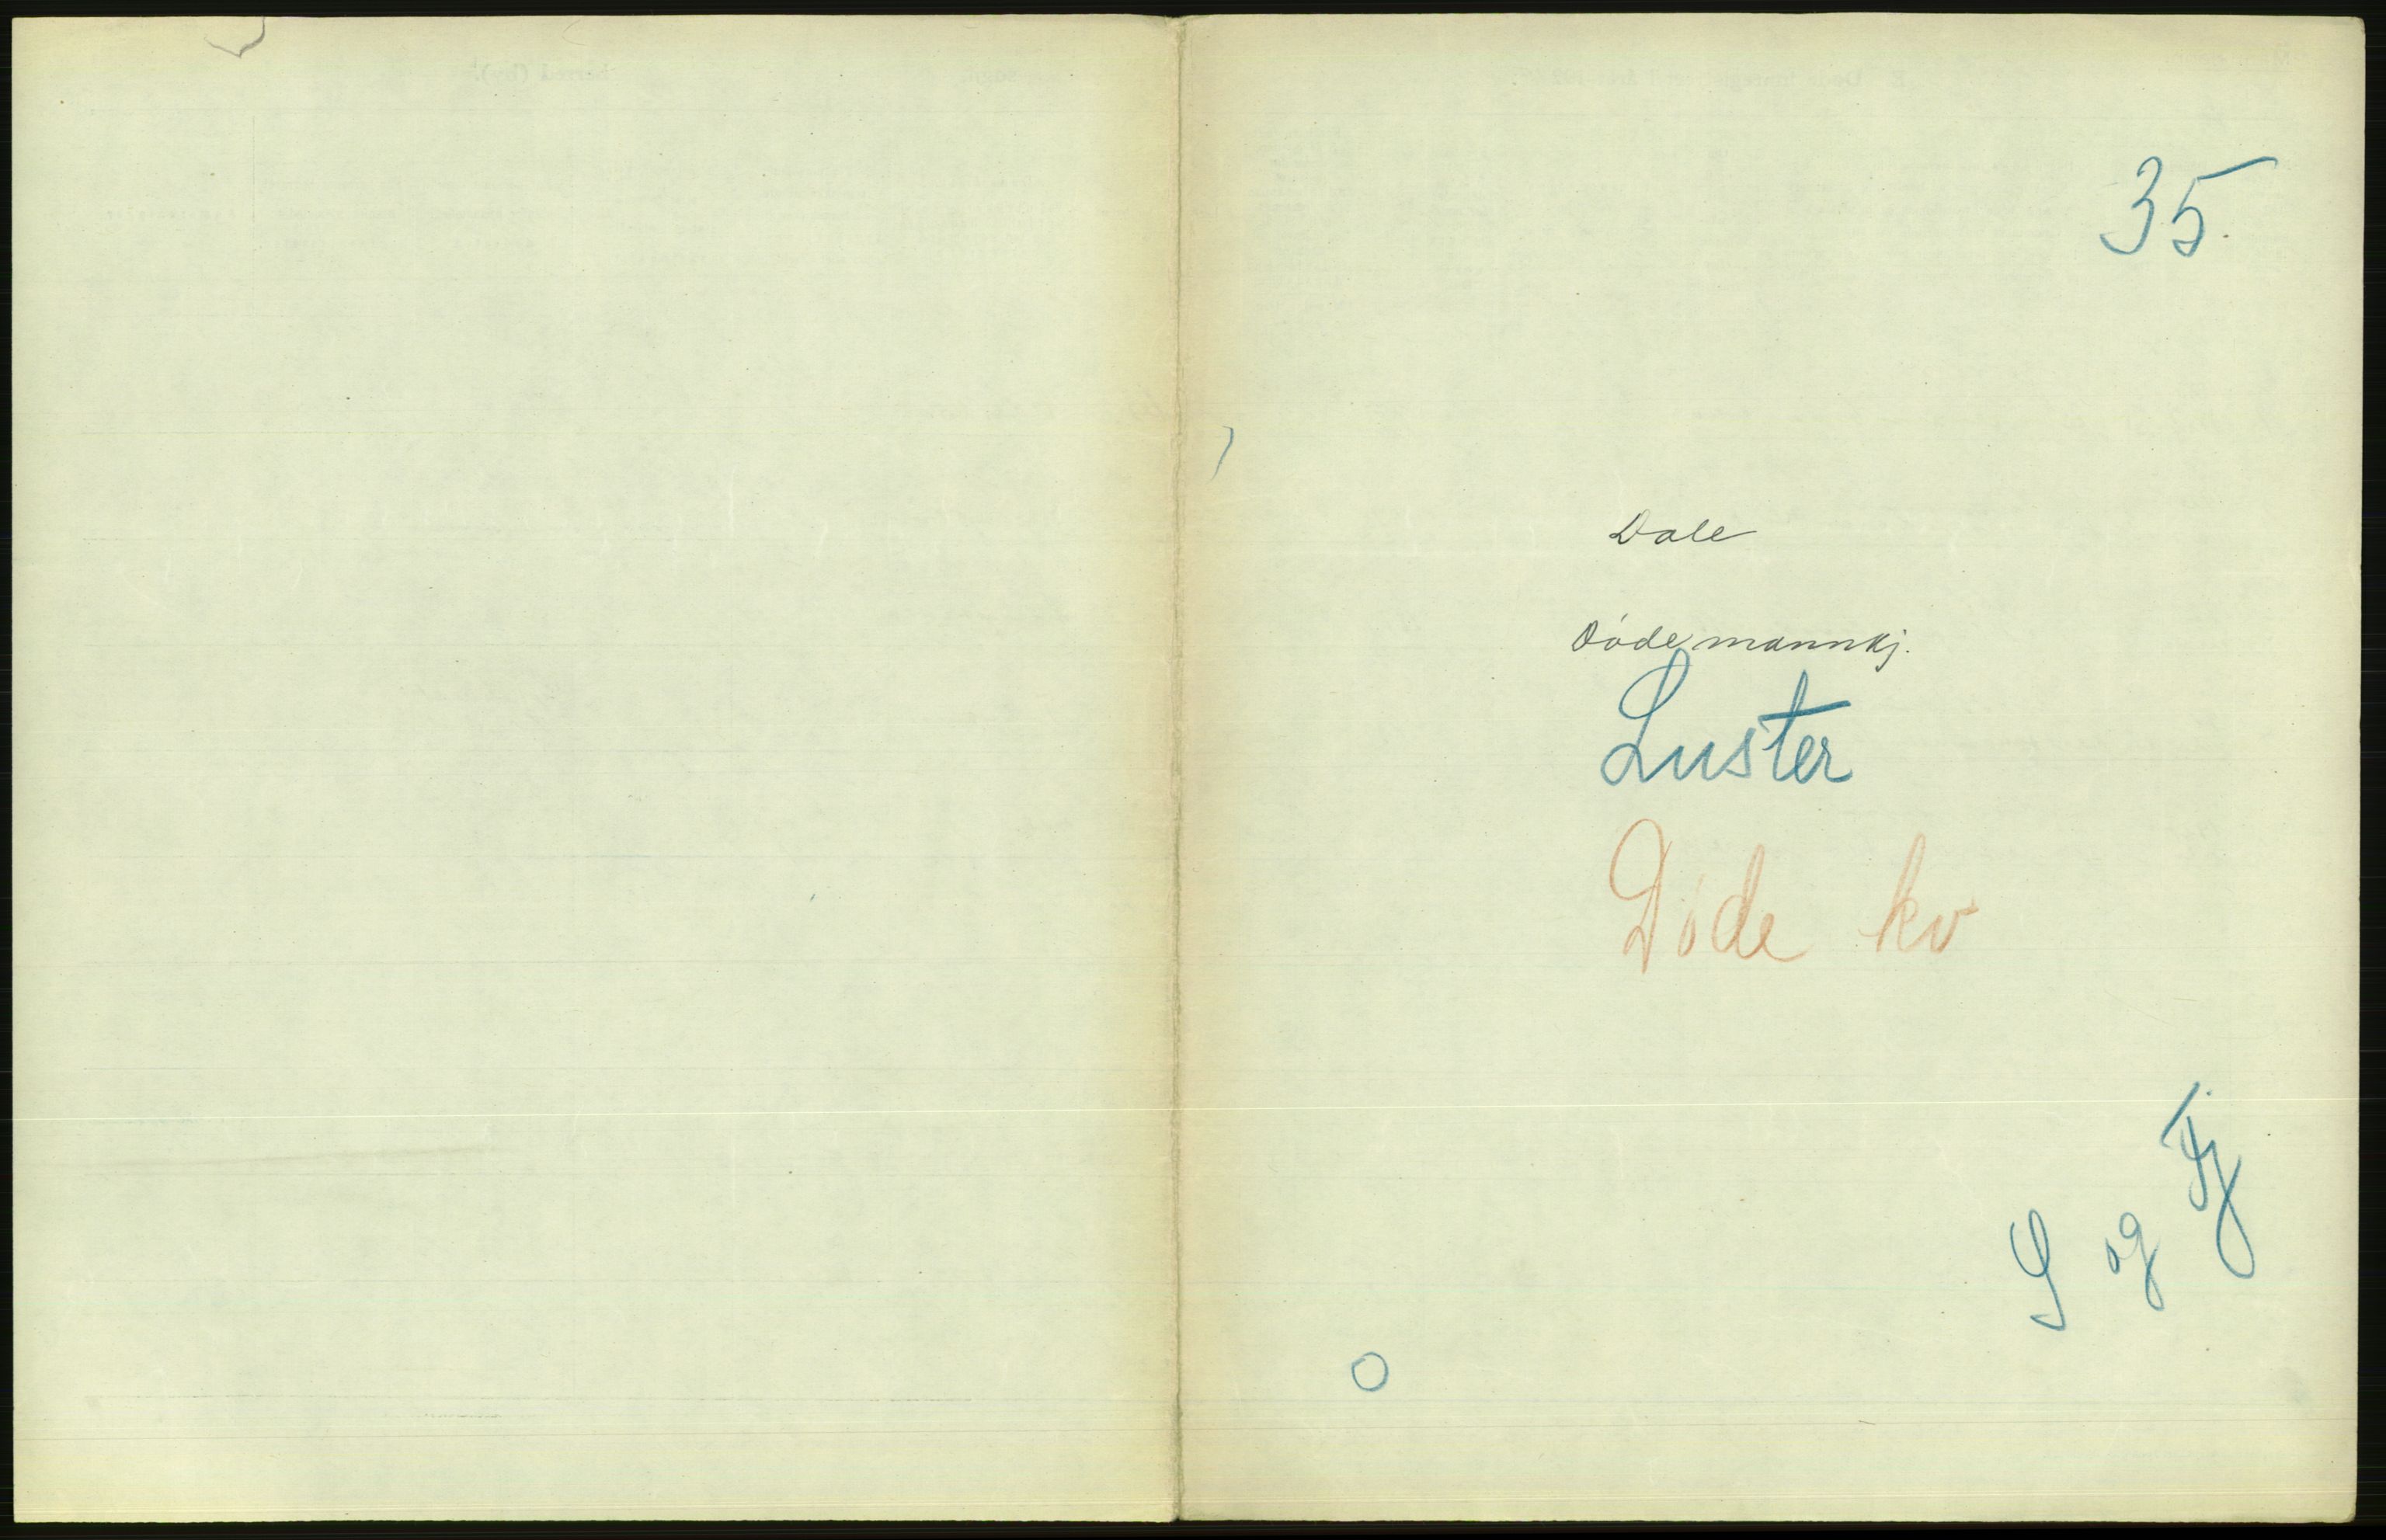 35.
Dale
Døde mannkj.
Luster
Døde kv
S og Fj